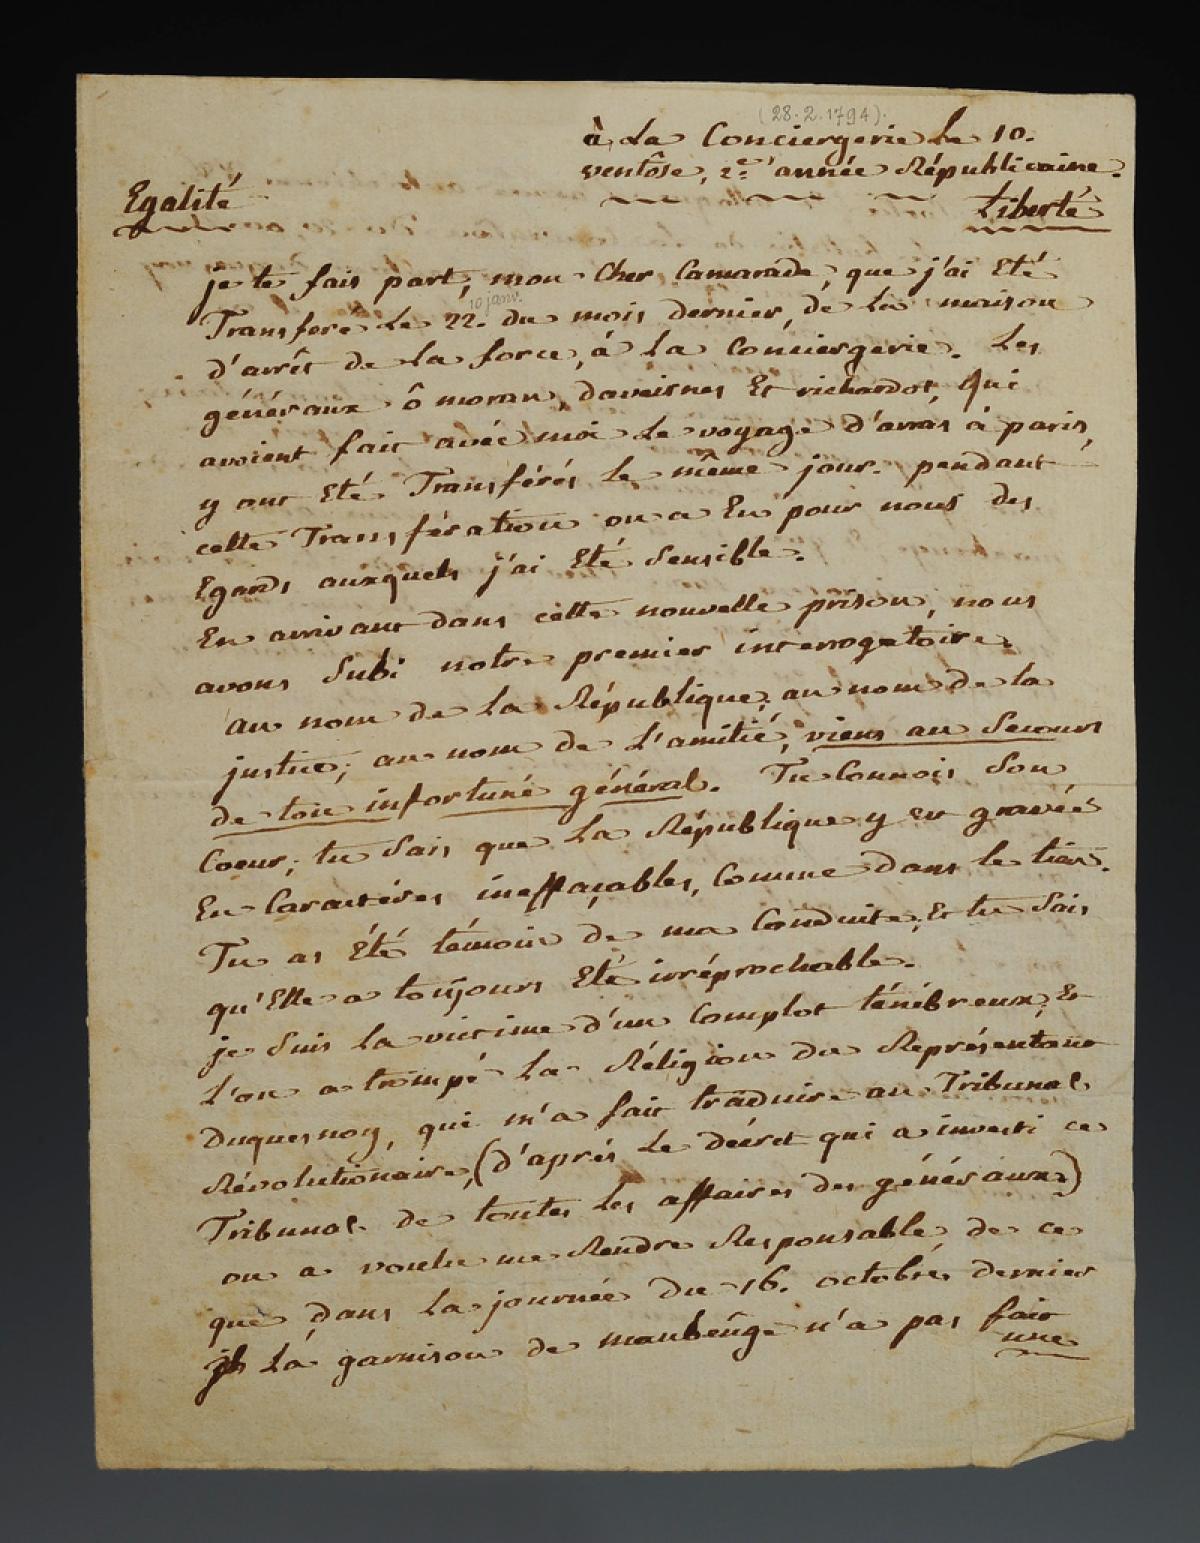 (28.2.1794).
à La Conciergerie le 10.
ventôse, 2e. année Républicaine.
Egalité
Liberté
je te fais part, mon Cher Camarade, que j'ai Eté
10 janv.
Transferé Le 22. du mois dernier, de La maison
d'arrêt de La force, à La Conciergerie. Les
généraux ô moran, davaisnes Et richardot, qui
avoient fait avéc moi Le voyage d'arras à paris,
y ont Eté Transférés Le même jour. pendant
cette Transfération on a Eu pour nous des
Egards auxquels j'ai Eté Sensible.
En arrivant dans cette nouvelle prison, nous
avons Subi notre premier interrogatoire.
au nom de La République, au nom de la
justice, au nom de L'amitié, viens au Secours
de ton infortuné général. Tu Connois Son
Coeur, tu Sais que La République y est gravée
En Caractéres ineffaçables, Comme dans le tien.
Tu as Été témoin de ma Conduite, Et tu Sais
qu'Elle a toujours Eté irréprochable.
je Suis La victime d'un Complot ténébreux, Et
L'on a trompé La Réligion du Représentant
Duquesnoy, qui m'a fait traduire au Tribunal
Révolutionaire, (d'après Le décret qui a investi ce
Tribunal de toutes Les affaires des généraux)
on a voulu me Rendre Responsable de ce
que dans La journée du 16. octobre dernier
La garnison de maubeuge n'a pas fait
une